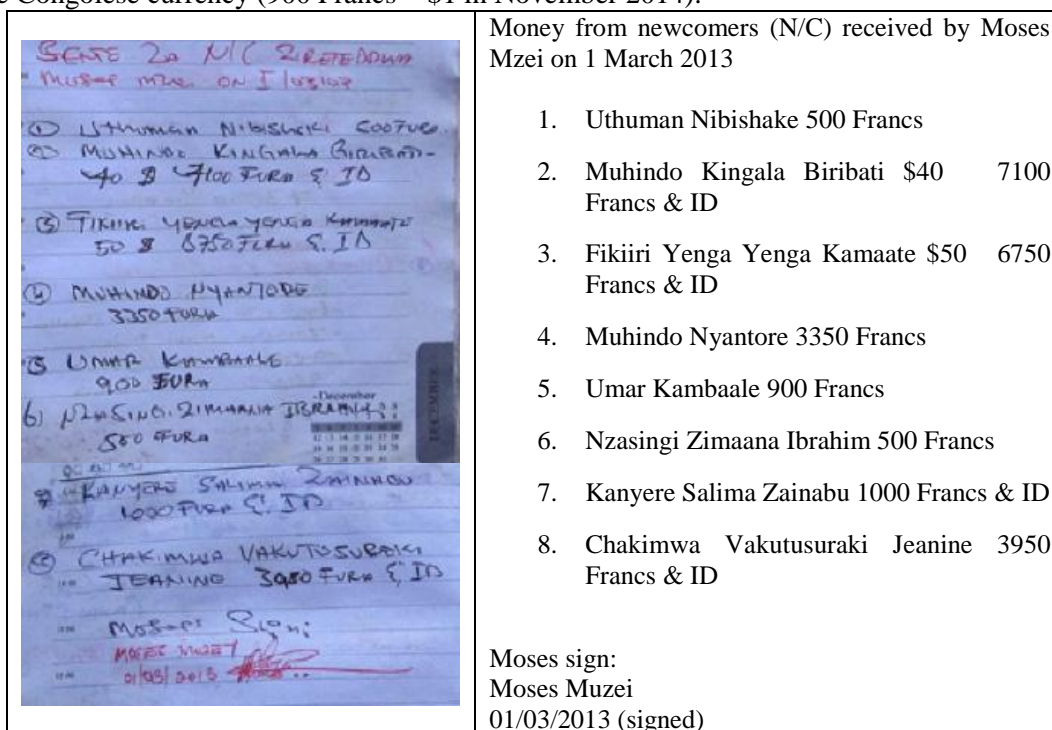 Congolese currency (900 Francs = $1 in November 2014).
SENTE ZA N/C
ON 1/03/
① Uthuman
② MUHINDO KINGALA BIRIBATI-
40 $ 7100 FURA & ID
③ YENGA YENGA
50 $ 6750 FURA & ID
④ MUHINDO NYANTORE
3350 FURA
5 UMAR KAMBAALE
900 FURA
6)
FURA
December
DECEMBER
KANYERE SALIMA ZAINABU
1000 FURA & ID
CHAKIMWA VAKUTUSURAKI
JEANINE 3950 FURA & ID
Sign:
01/03/2013
Money from newcomers (N/C) received by Moses
Mzei on 1 March 2013
1. Uthuman Nibishake 500 Francs
2. Muhindo Kingala Biribati $40 7100
Francs & ID
3. Fikiiri Yenga Yenga Kamaate $50 6750
Francs & ID
4. Muhindo Nyantore 3350 Francs
5. Umar Kambaale 900 Francs
6. Nzasingi Zimaana Ibrahim 500 Francs
7. Kanyere Salima Zainabu 1000 Francs & ID
8. Chakimwa Vakutusuraki Jeanine 3950
Francs & ID
Moses sign:
Moses Muzei
01/03/2013 (signed)